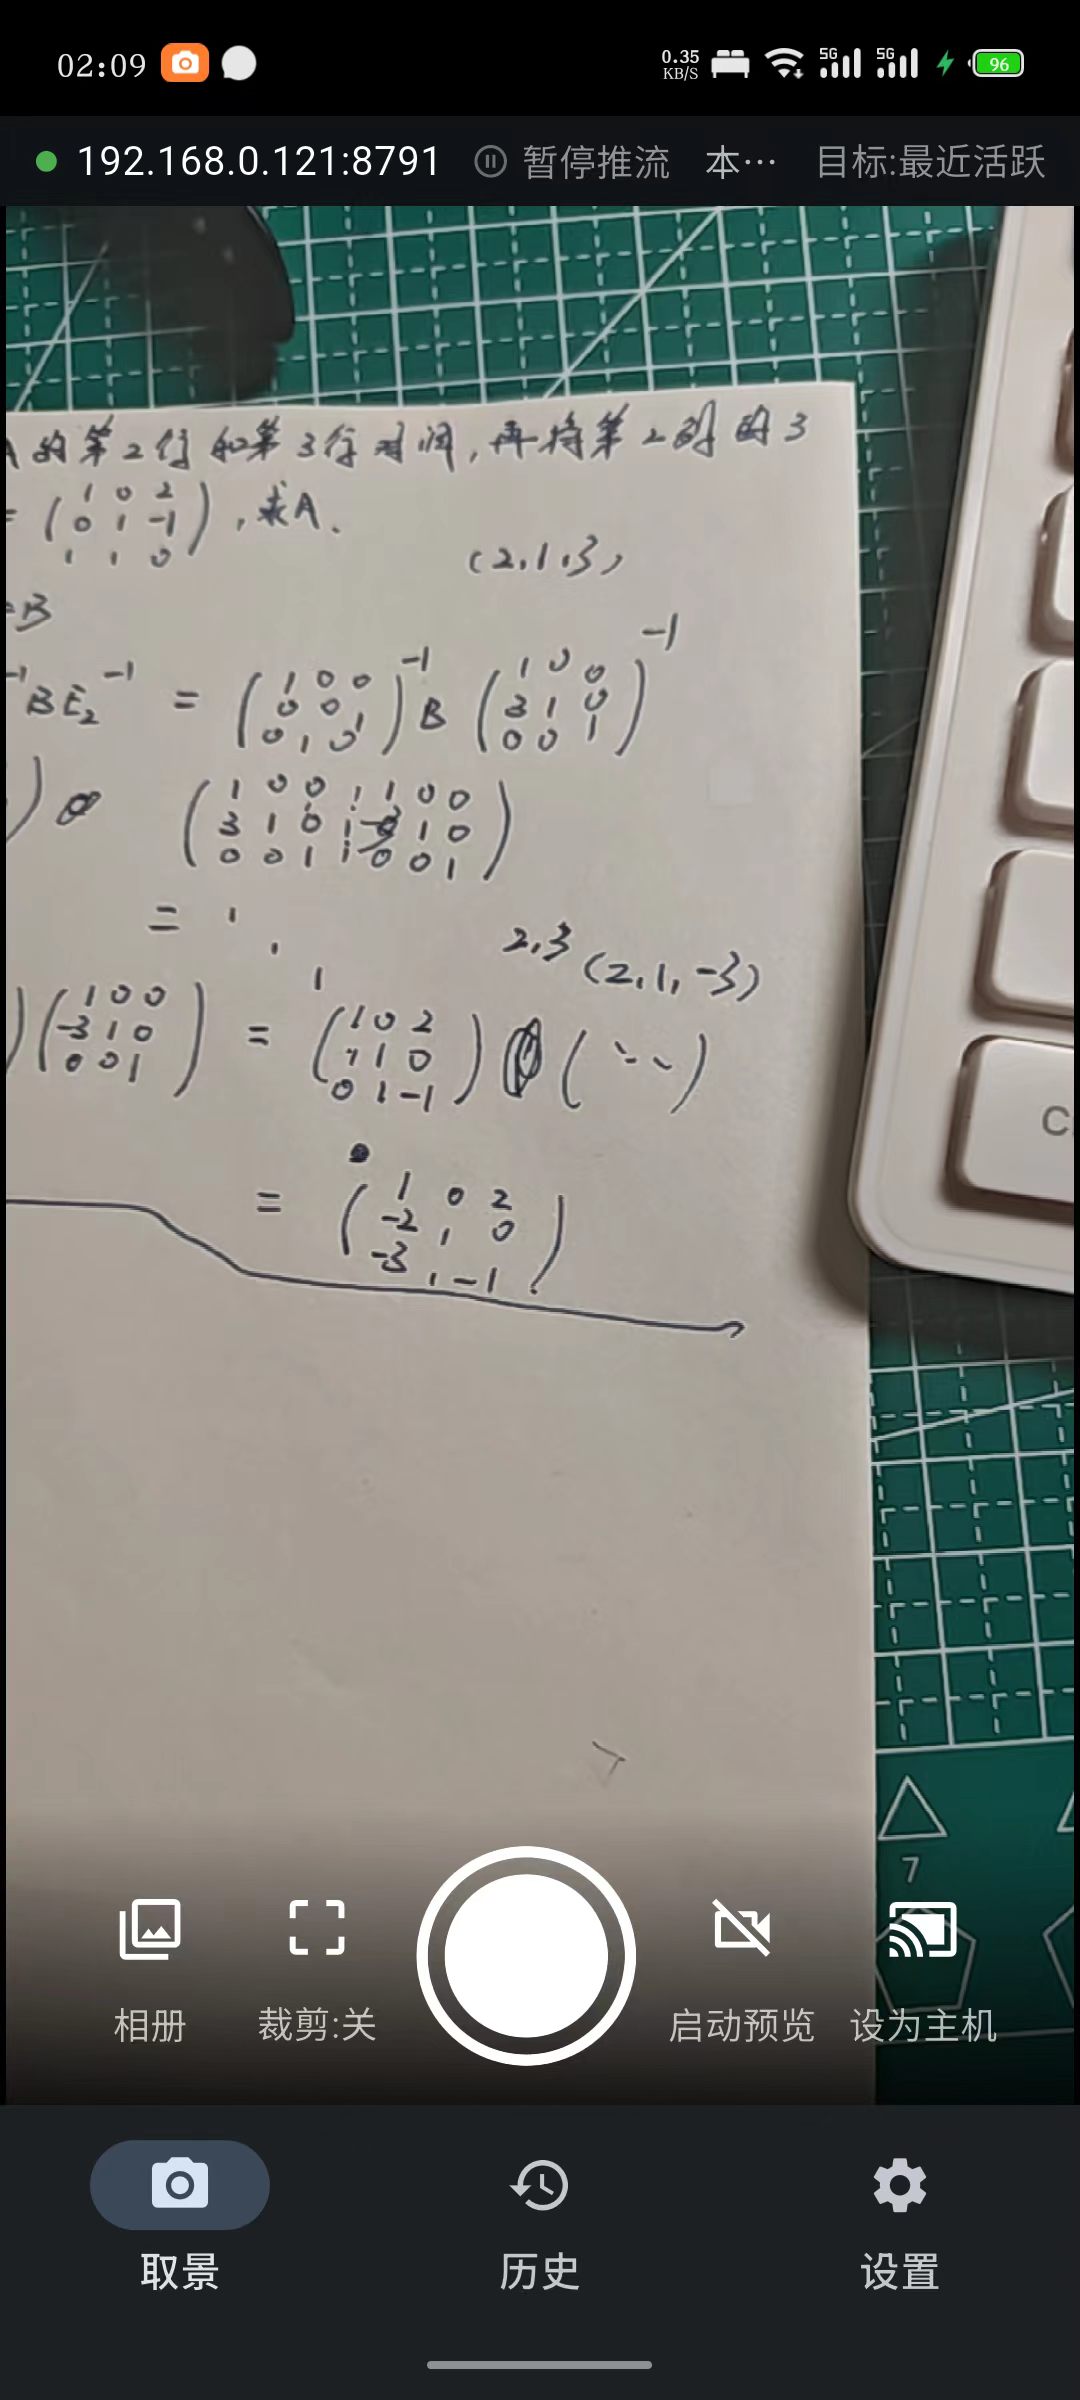 02:09 0.35 KB/S 5G 5G 96
192.168.0.121:8791 暂停推流 本… 目标:最近活跃
A的第2行和第3行对调,再将第2列的3
= (1 0 2
0 1 -1
1 1 0), 求A.
(2,1,3)
=B
-1 B E₂⁻¹ = (1 0 0
0 0 1
0 1 0)⁻¹ B (1 0 0
3 1 0
0 0 1)⁻¹
(1 0 0 1 0 0
3 1 0 1 0
0 0 1 0 0 1)
= 1
1
1
2,3 (2,1,-3)
)(1 0 0
-3 1 0
0 0 1) = (1 0 2
1 1 0
0 1 -1) ( )
= (1 0 2
-2 1 0
-3 1 -1)
C
7
相册 裁剪:关 启动预览 设为主机
取景 历史 设置